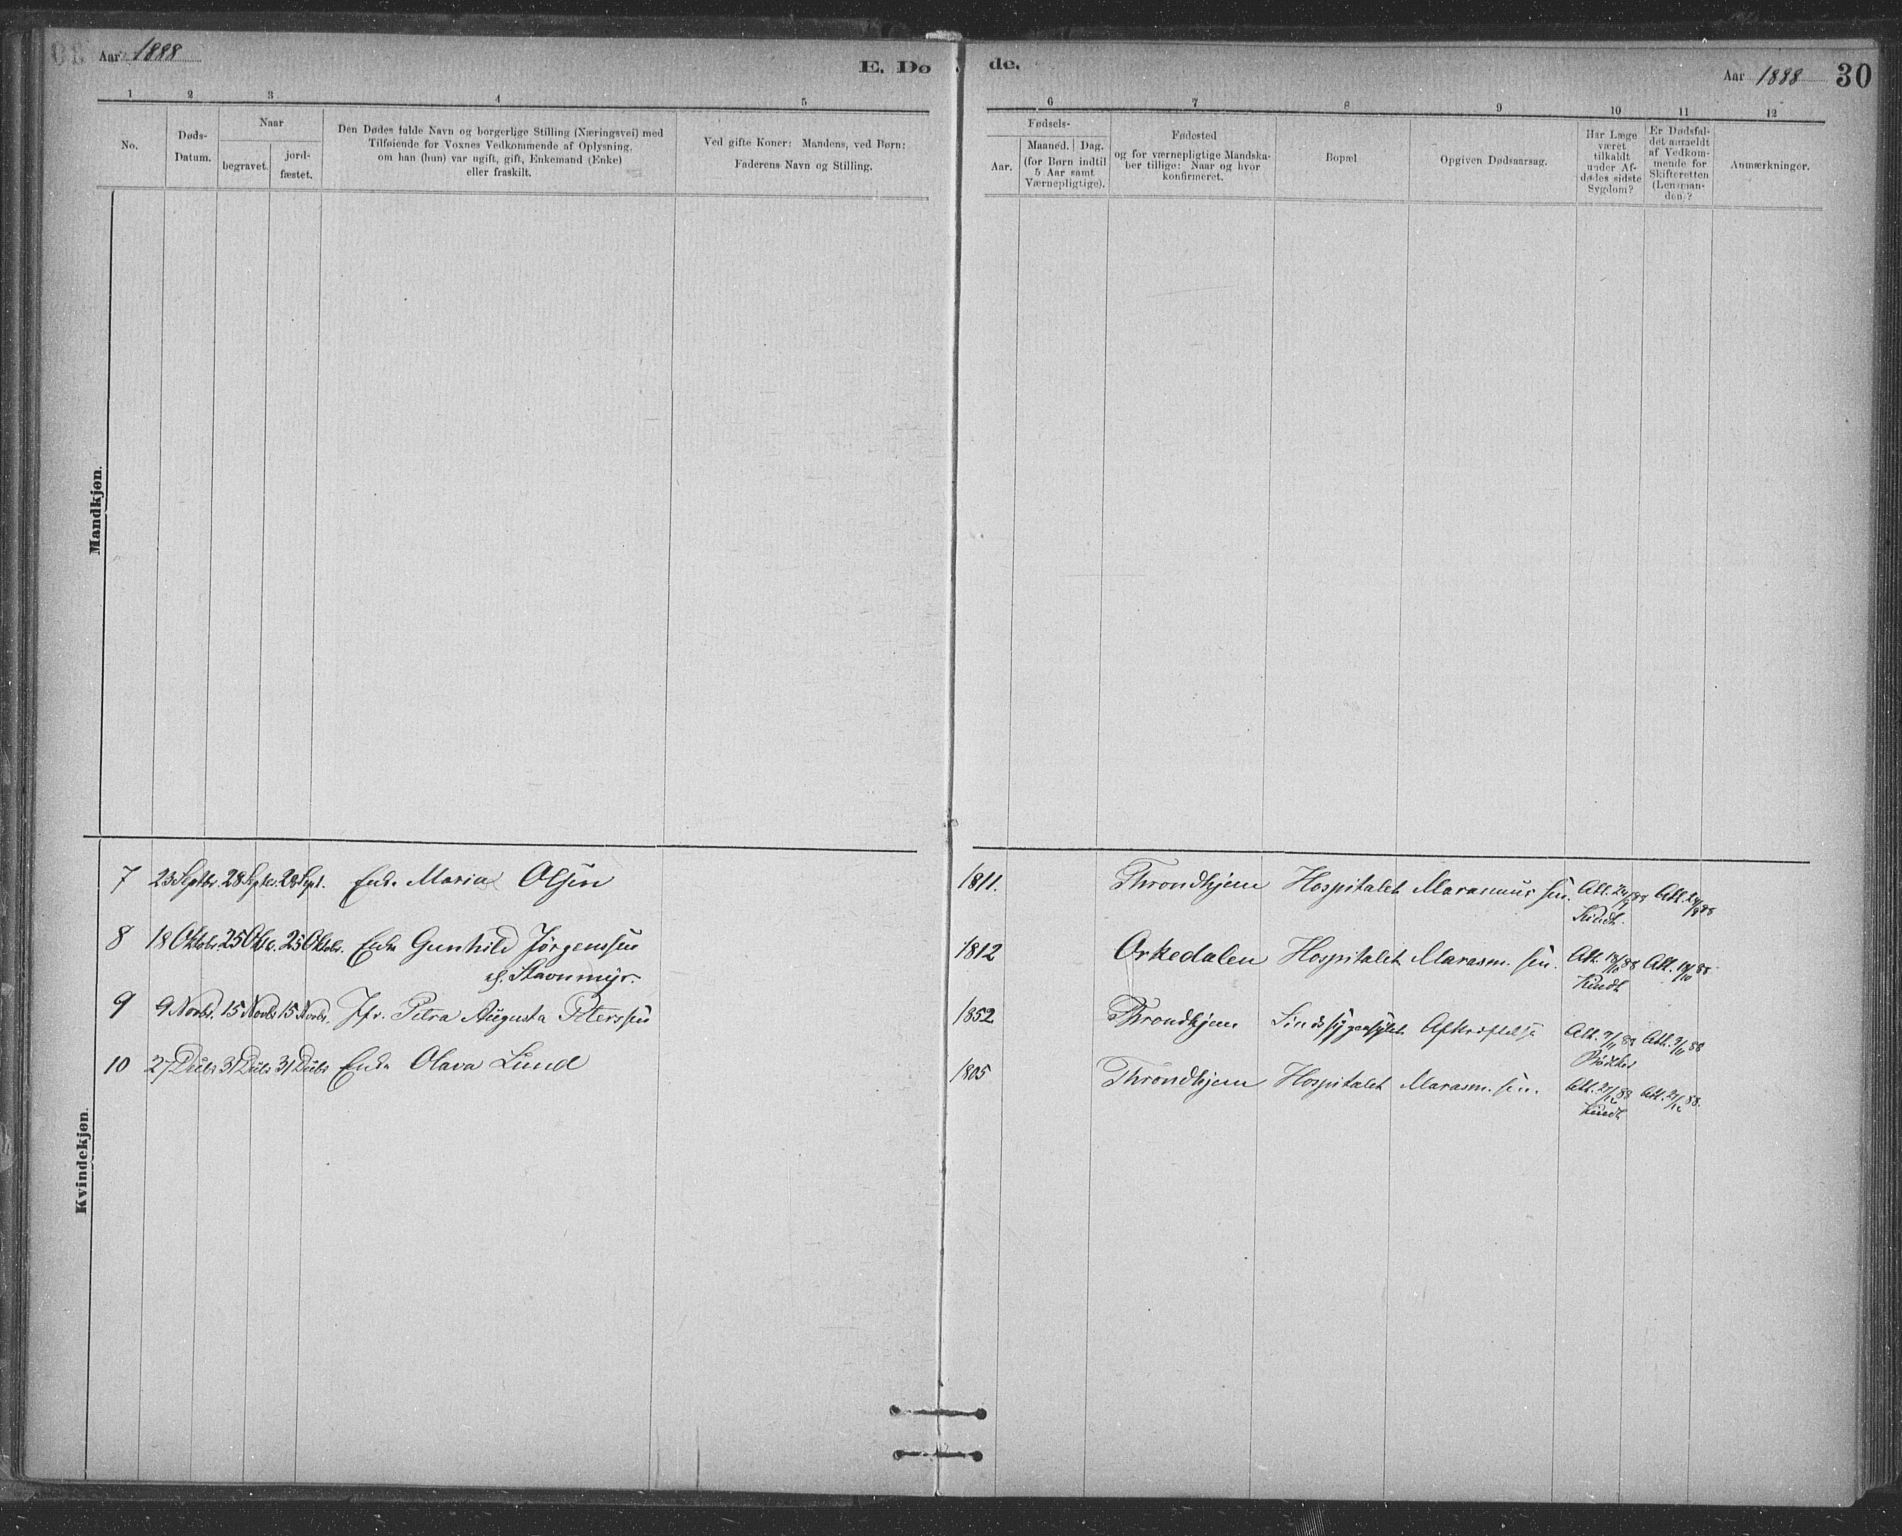 Aar 1888
E. Dø
de.
Aar 1888
30
1 2 3 4 5
6 7 8 9 10 11 12
No.
Døds-
Datum.
Naar
begravet.
jord-
fæstet.
Den Dødes fulde Navn og borgerlige Stilling (Næringsvei) med
Tilføiende for Voxnes Vedkommende af Oplysning,
om han (hun) var ugift, gift, Enkemand (Enke)
eller fraskilt.
Ved gifte Koner: Mandens, ved Børn:
Faderens Navn og Stilling.
Fødsels-
Aar.
Maaned. Dag.
(for Børn indtil
5 Aar samt
Værnepligtige).
Fødested
og for værnepligtige Mandska-
ber tillige: Naar og hvor
konfirmeret.
Bopæl
Opgiven Dødsaarsag.
Har Læge
været
tilkaldt
under Af-
dødes sidste
Sygdom?
Er Dødsfal-
det anmeldt
af Vedkom-
mende for
Skifteretten
(Lensman-
den)?
Anmærkninger.
Mandkjøn.
Kvindekjøn.
7 23 Septbr. 28 Septe. 28 Sept. Enke Maria Olsen 1811. Throndhjem Hospitalet Marasmus sen. Att. 24/9 88 Att. 24/9 88
Kindt.
8 18 Oktobr. 25 Oktb. 25 Oktobr. Enke Gunhild Jørgenssen 1812 Orkedalen Hospitalet Marasm. sen. Att. 18/10 88 Att. 19/10 88
Kindt
9 9 Novbr. 15 Novbr 15 Novbr. Jfr. Petra Augusta Peterssen 1852 Throndhjem Sindssygeasylet Afkræftelse Att. 9/11 88 Att. 9/11 88
10 27 Decbr 31 Decbr 31 Decbr Enke Olava Lund 1805 Throndhjem Hospitalet Marasm. sen. Att. 27/12 88 Att. 27/12 88.
Kindt